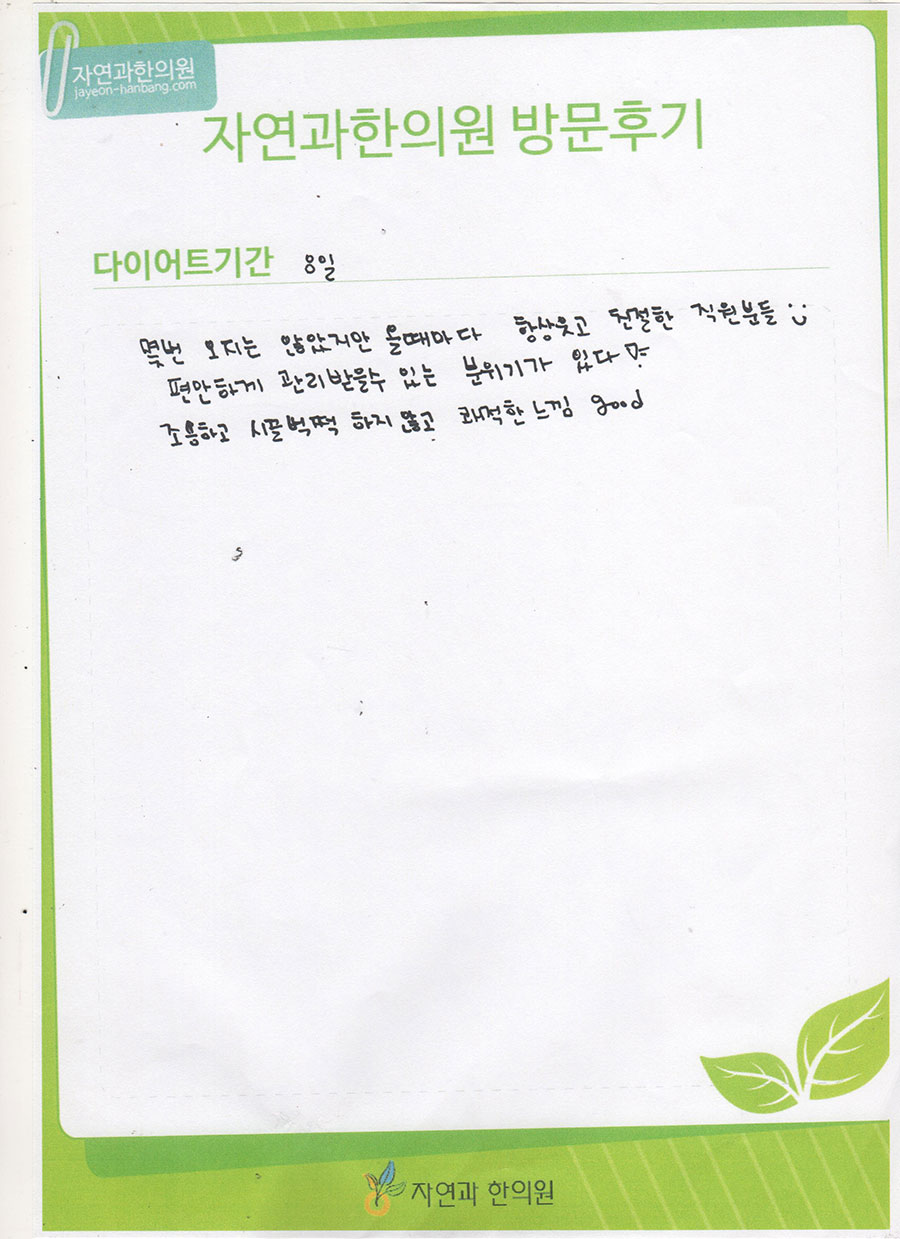 자연과한의원
jayeon-hanbang.com
자연과한의원 방문후기
다이어트기간 8일
몇번 오지는 않았지만 올때마다 항상웃고 친절한 직원분들 :)
편안하게 관리받을수 있는 분위기가 있다
조용하고 시끌벅쩍 하지않고 쾌적한느낌 good
자연과 한의원